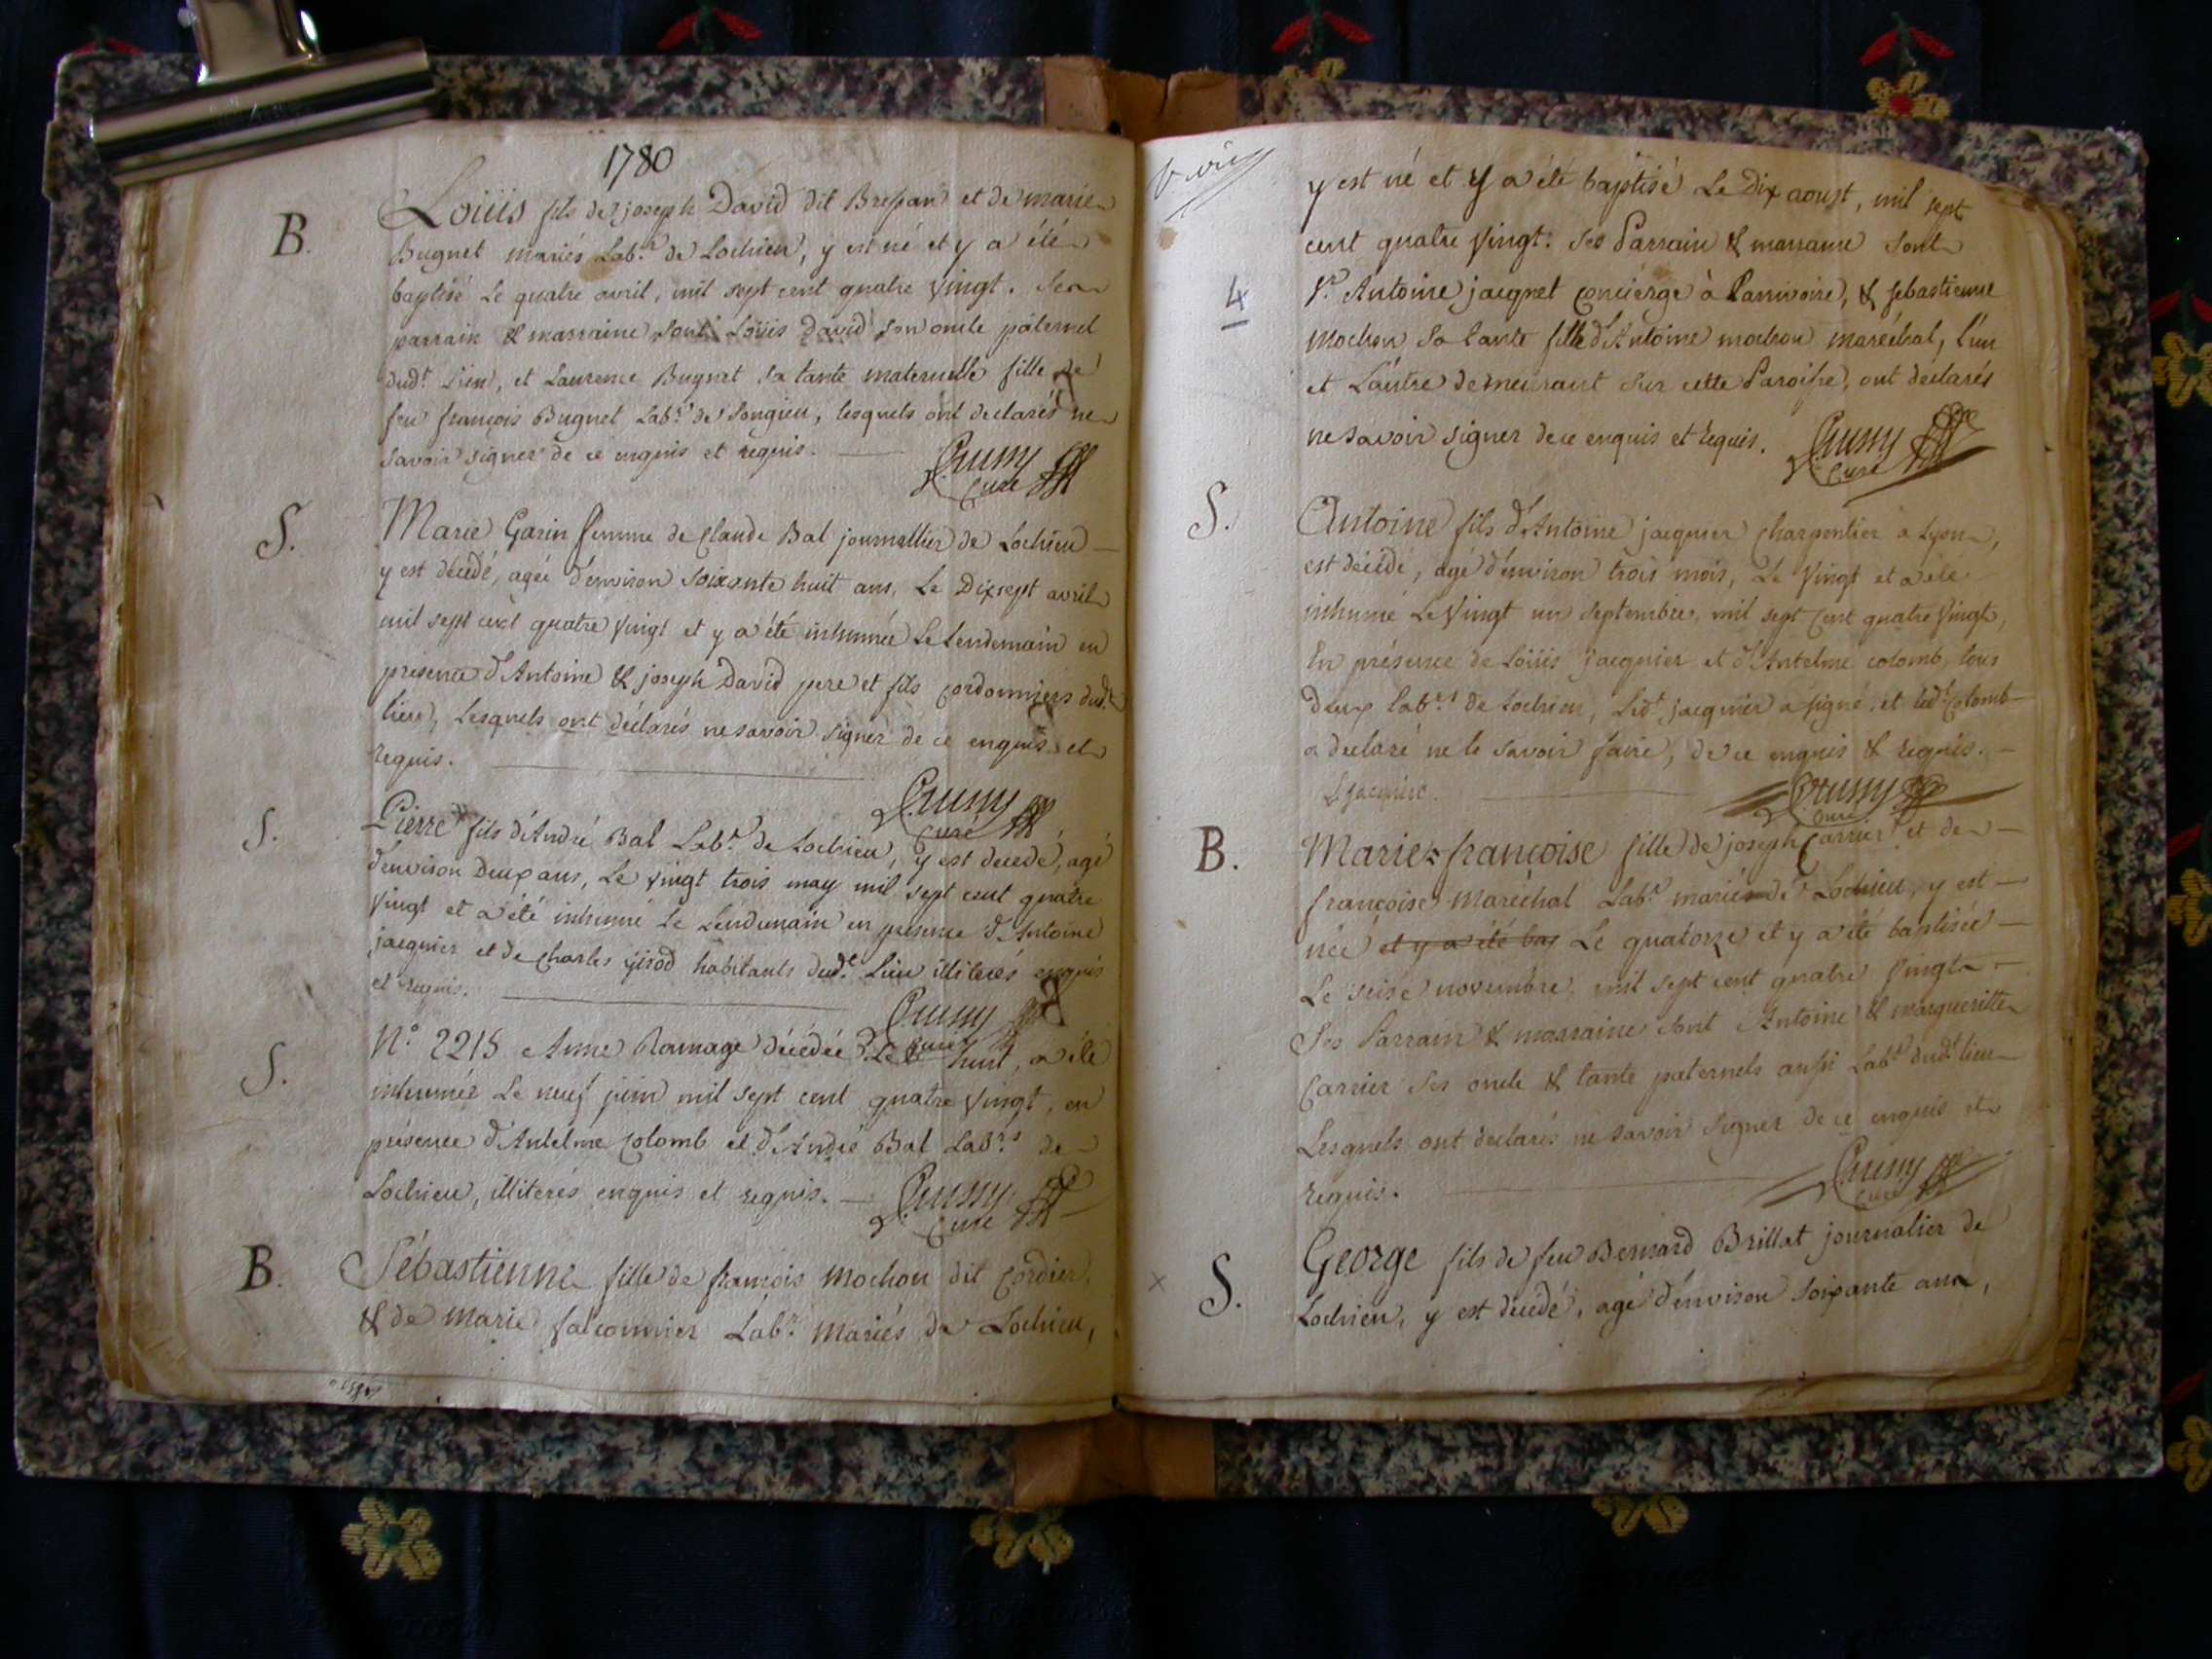 1780
B.
Loüis fils de joseph David dit Bressan et de marie
Bugnet mariés Lab.r de Lochieu, y est né et y a été
baptisé Le quatre avril, mil sept cent quatre vingt. Ses
parrain & marraine sont Loüis David son oncle paternel
dud.t Lieu, et Laurence Bugnet sa tante maternelle fille de
feu françois Bugnet Lab.r de Songieu, lesquels ont declarés ne
savoir signer de ce enquis et requis.
Crussy
Curé
S.
Marie Garin femme de Claude Bal journallier de Lochieu
y est décedé, agée d'environ soixante huit ans, Le Dixsept avril
mil sept cent quatre vingt et y a été inhumée Le Lendemain en
présence d'Antoine & joseph David pere et fils cordonniers dud.t
lieu, Lesquels ont déclarés ne savoir signer de ce enquis et
requis.
Crussy
Curé
S.
Pierre fils d'André Bal Lab.r de Lochieu, y est decedé, agé
d'environ Deux ans, Le vingt trois may mil sept cent quatre
vingt et a été inhumé Le Lendemain en présence d'Antoine
jacquier et de Charles habitants dud.t Lieu illiterés enquis
et requis.
Crussy
Curé
S.
N.o 2215 Anne Ramage décédée Le huit, a été
inhumée Le neuf juin mil sept cent quatre vingt, en
présence d'Antelme Colomb et d'André Bal Lab.rs de
Lochieu, illiterés enquis et requis.
Crussy
Curé
B.
Sébastienne fille de françois mochon dit Cordier,
& de marie falconnier Lab.r mariés de Lochieu,
y est né et y a été baptisé Le Dix aoust, mil sept
cent quatre vingt. Ses Parrain & marraine sont
4
Antoine jacquet concierge à & sebastienne
mochon sa tante fille d'Antoine mochon maréchal, l'un
et L'autre demeurant sur cette Paroisse, ont declarés
ne savoir signer de ce enquis et requis.
Crussy
Curé
S.
Antoine fils d'Antoine jacquier Charpentier à Lyon,
est décédé, agé d'environ trois mois, Le vingt et a été
inhumé Le vingt un septembre, mil sept cent quatre vingt,
En présence de Loüis jacquier et d'Antelme colomb, tous
deux Lab.rs de Lochieu, Led.t jacquier a signé, et led.t Colomb
a declaré ne le savoir faire, de ce enquis & requis.
L jacquier.
Crussy
Curé
B.
Marie=françoise fille de joseph Carrier et de
françoise Maréchal Lab.r mariés de Lochieu, y est
née et y a été bap Le quatorze et y a été baptisée
Le seise novembre, mil sept cent quatre vingt
Ses Parrain & marraine sont Antoine & margueritte
Carrier ses oncle & tante paternels aussi Lab.r dud.t lieu
Lesquels ont declarés ne savoir signer de ce enquis et
requis.
Crussy
Curé
S.
George fils de feu Bernard Brillat journalier de
Lochieu, y est decedé, agé d'environ soixante ans,